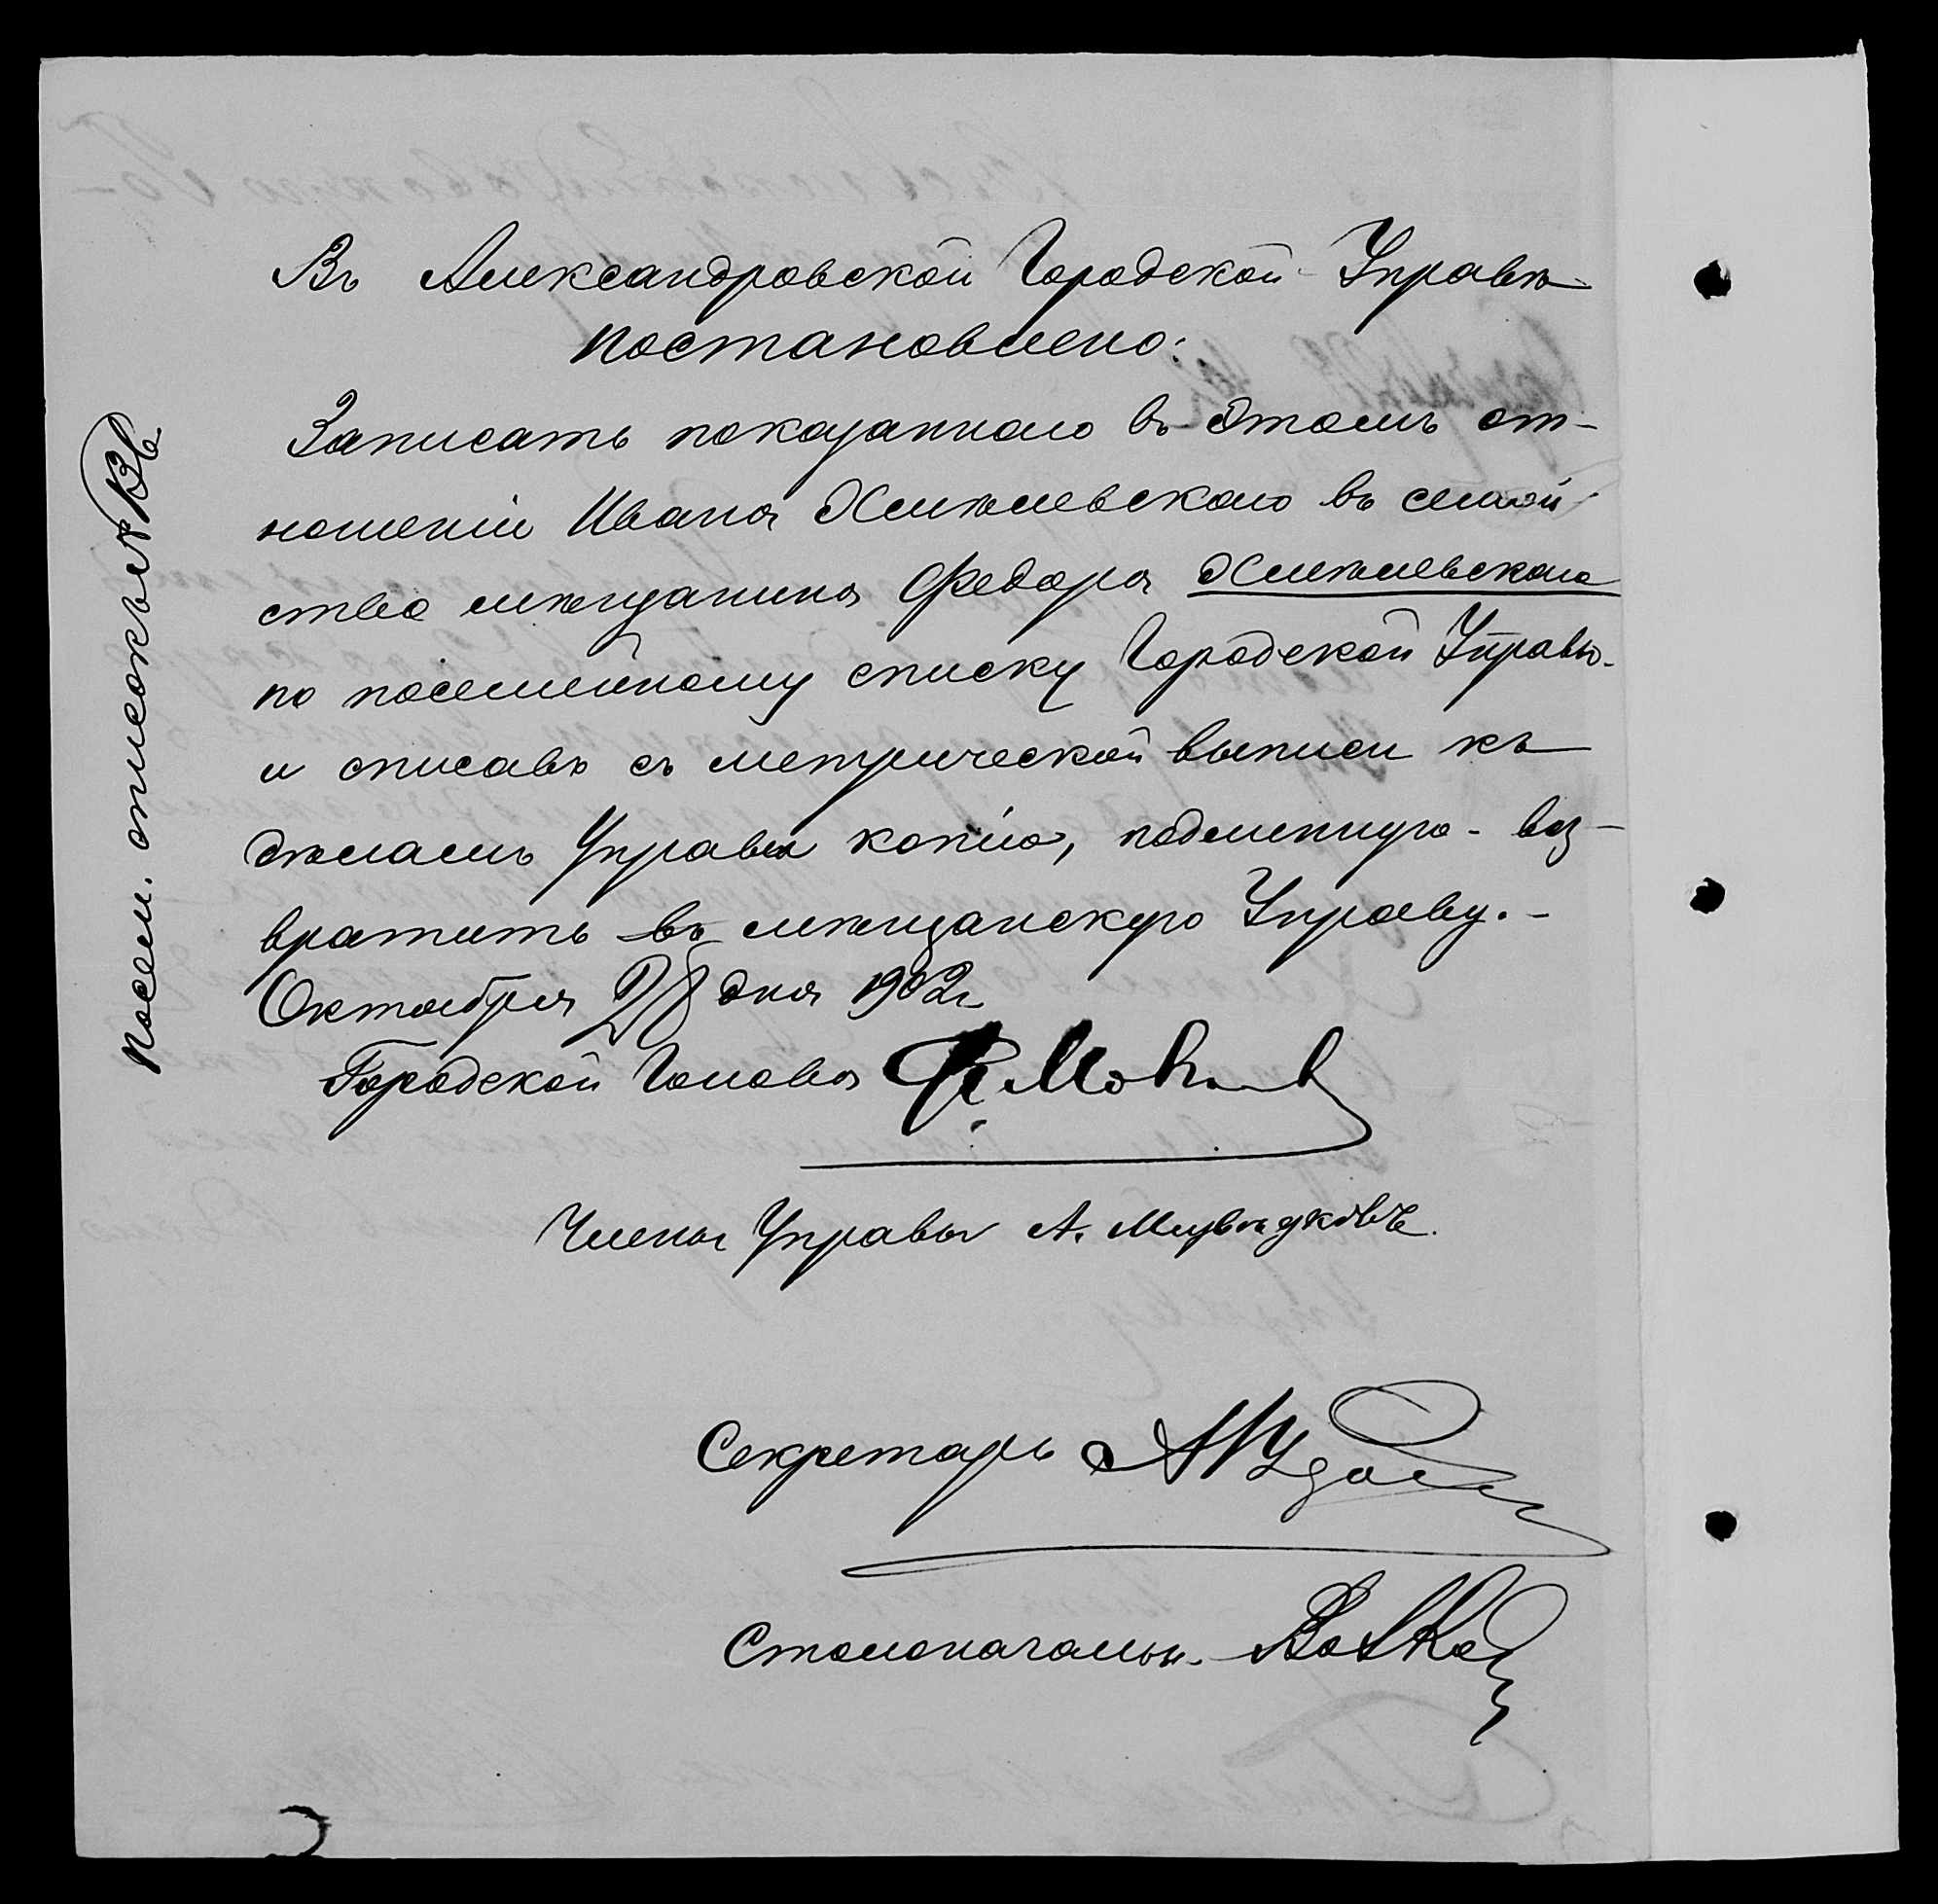 Въ Александровской Городской Управѣ
постановлено:
Записать показаннаго въ этомъ от-
ношеніи Ивана Хмѣлевскаго въ семей
ство мѣщанина Федора Хмѣлевскаго
по посемейному списку Городской Управы
и списавъ съ метрической выписи къ
дѣламъ Управы копію, подлинную - воз-
вратить въ мѣщанскую Управу. -
Октября 28 дня 1902 г.
Городской Голова Ф. Мовчан
Члены Управы А.
Секретарь
Столоначальн.
Посем. списокъ №